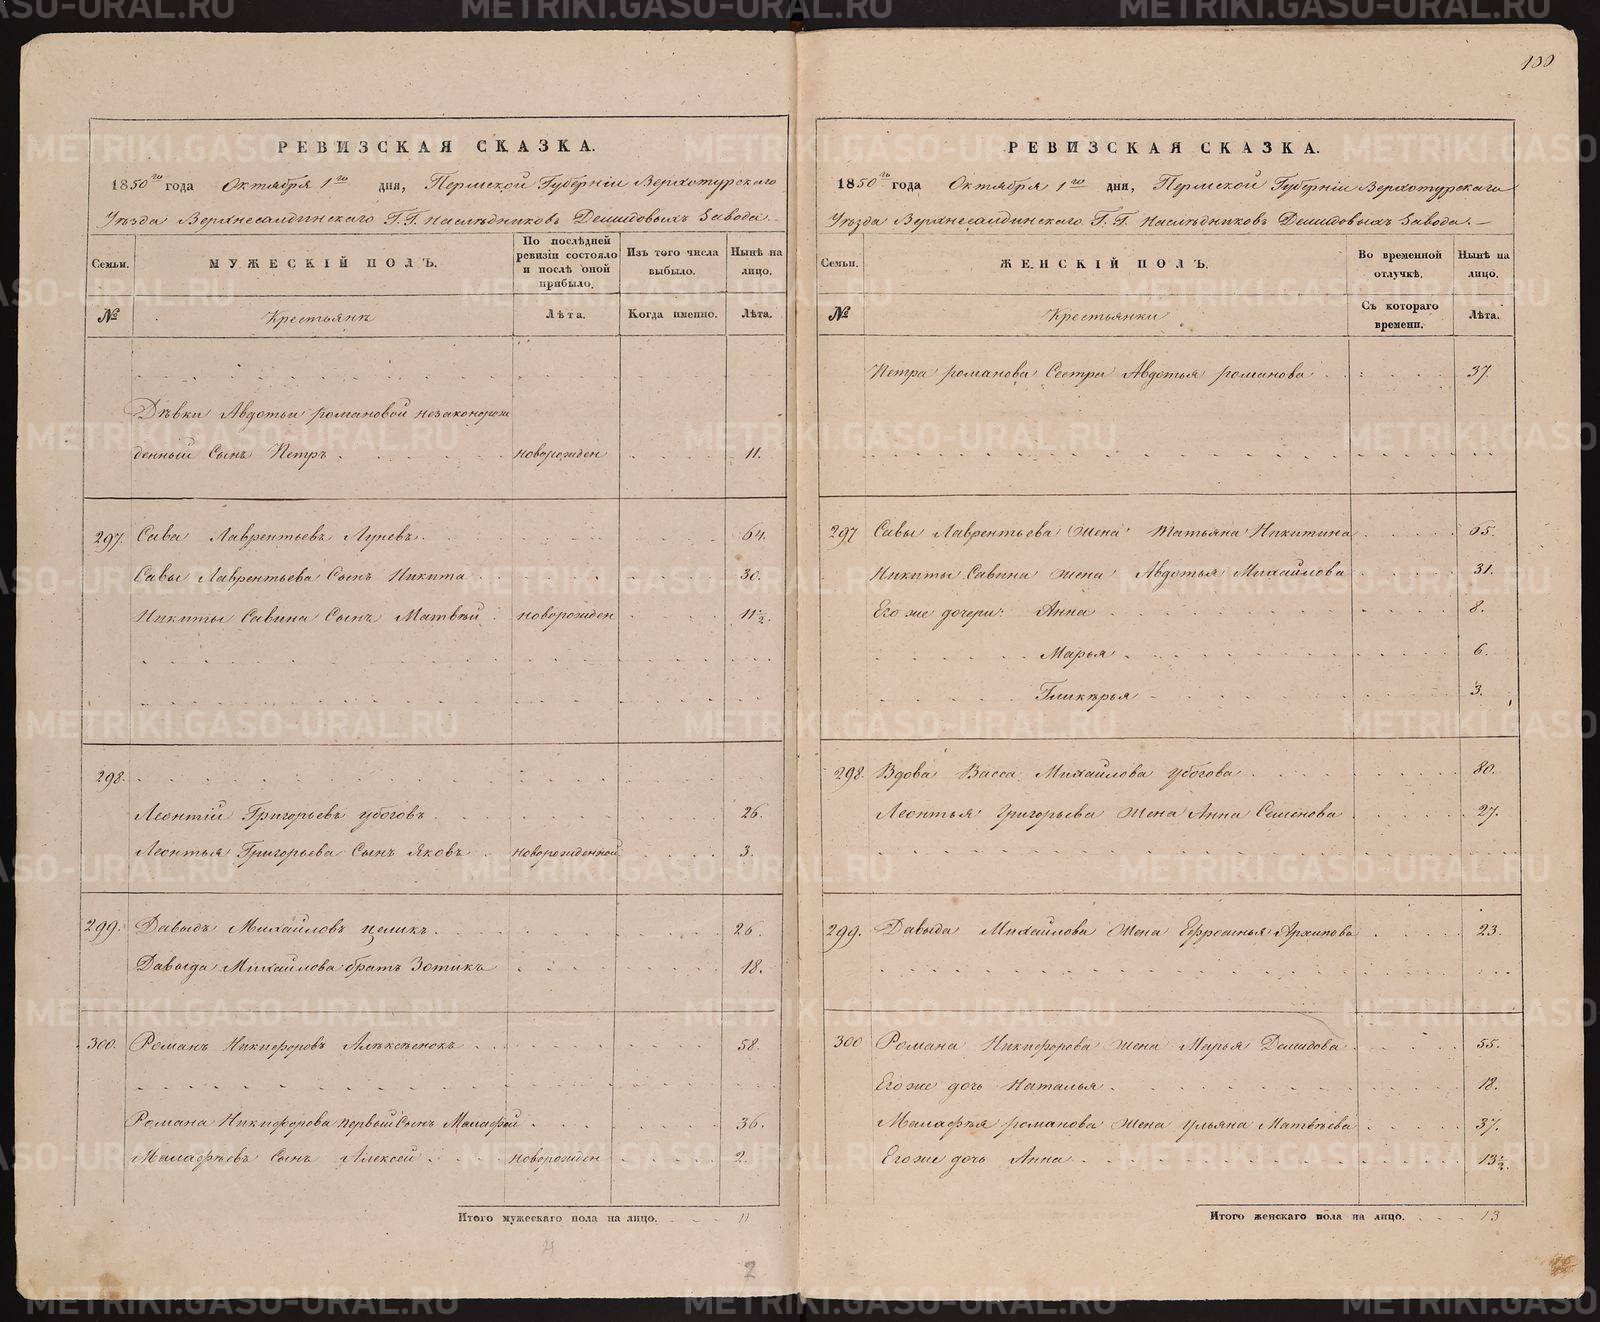 100
РЕВИЗСКАЯ СКАЗКА.
1850го года Октября 1го дня, Пермской Губерніи Верхотурскаго
Уѣзда Верхнесалдинскаго Г.Г. Наслѣдниковъ Демидовыхъ Завода.
Семьи.
МУЖЕСКІЙ ПОЛЪ.
По послѣдней ревизіи состояло и послѣ оной прибыло.
Изъ того числа выбыло.
Нынѣ на лицо.
№
Крестьянѣ
Лѣта.
Когда именно.
Лѣта.
Дѣвки Авдотьи романовой незаконорож
денный Сынъ Петръ новорожден 11.
297. Сава Лаврентьевъ Луневъ. 64.
Савы Лаврентьева Сынъ Никита 30.
Никиты Савина Сынъ Матвѣй новорожден 11½.
298.
Леонтій Григорьевъ убоговъ. 26.
Леонтья Григорьева Сынъ Яковъ новорожденной 3.
299. Давыдъ Михайловъ целикъ. 26.
Давыда Михайлова братъ Зотикъ 18.
300. Романъ Никифоровъ Алѣксѣенокъ 58.
Романа Никифорова первый Сынъ Малафѣй 36.
Малафѣевъ Сынъ Алексѣй новорожден 2.
Итого мужескаго пола на лицо. 11
2
РЕВИЗСКАЯ СКАЗКА.
1850го года Октября 1го дня, Пермской Губерніи Верхотурскаго
Уѣзда Верхнесалдинскаго Г.Г. Наслѣдниковъ Демидовыхъ Завода.
Семьи.
ЖЕНСКІЙ ПОЛЪ.
Во временной отлучкѣ.
Нынѣ на лицо.
№
Крестьянки
Съ котораго времени.
Лѣта.
Петра романова Сестра Авдотья романова 37.
297 Савы Лаврентьева Жена Татьяна Никитина 65.
Никиты Савина жена Авдотья Михайлова 31.
Его же дочери: Анна 8.
Марья 6.
Гликѣрья 3.
298. Вдова Васса Михайлова убогова 80.
Леонтья Григорьева жена Анна Семенова 27.
299. Давыда Михайлова жена Ефросинья Архипова 23.
300 Романа Никифорова жена Марья Демидова 55.
Его же дочь Наталья. 18.
Малафѣя романова жена ульяна Матвѣева 37.
Его же дочь Анна 13½.
Итого женскаго пола на лицо. 13
METRIKI.GASO-URAL.RU